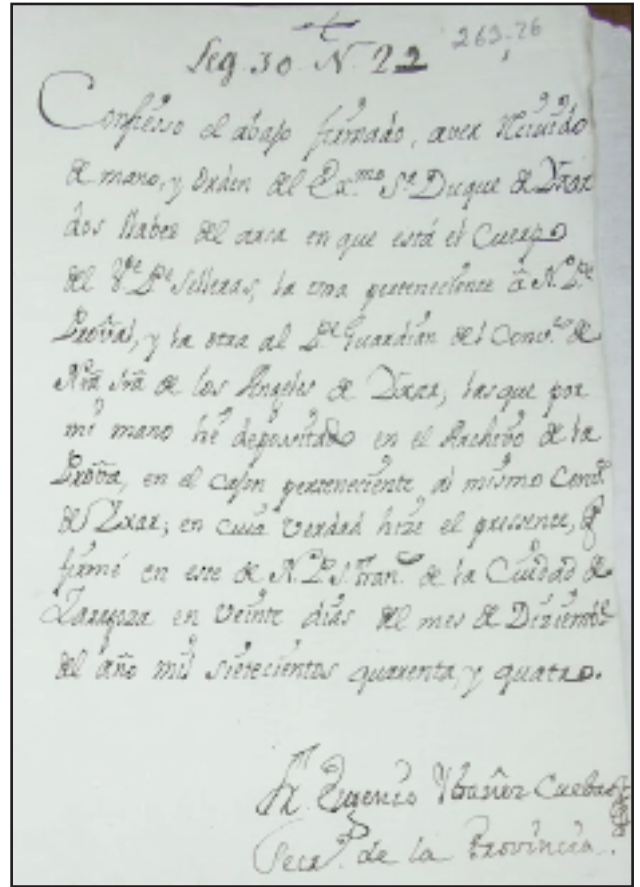 Leg. 30 N. 22
263,, 76
Confiesso el abajo firmado, aver Reciuido
de mano, y orden del Ex.mo S.r Duque de Yxar
dos llabes del arca en que està el Cuerpo
del V.e P.e Selleras, la vna perteneciente â N. P.e
Proṽal, y la otra al P.e Guardian del Conv.to de
Nr̃a Sr̃a de los Angeles de Yxar, las que por
mi mano hè depositado en el Archivo de la
Proṽa, en el cajon perteneciente al mismo Conv.to
de Yxar; en cuia verdad hize el pressente, q̃
firmè en este de N. P. S. Fran.co de la Ciudad de
Zaragoza en veinte dias del mes de Diziembre
del año mil sietecientos quarenta, y quatro.
Fr. Eugenio Ybañez Cuebas
Secr.o de la Provincia.